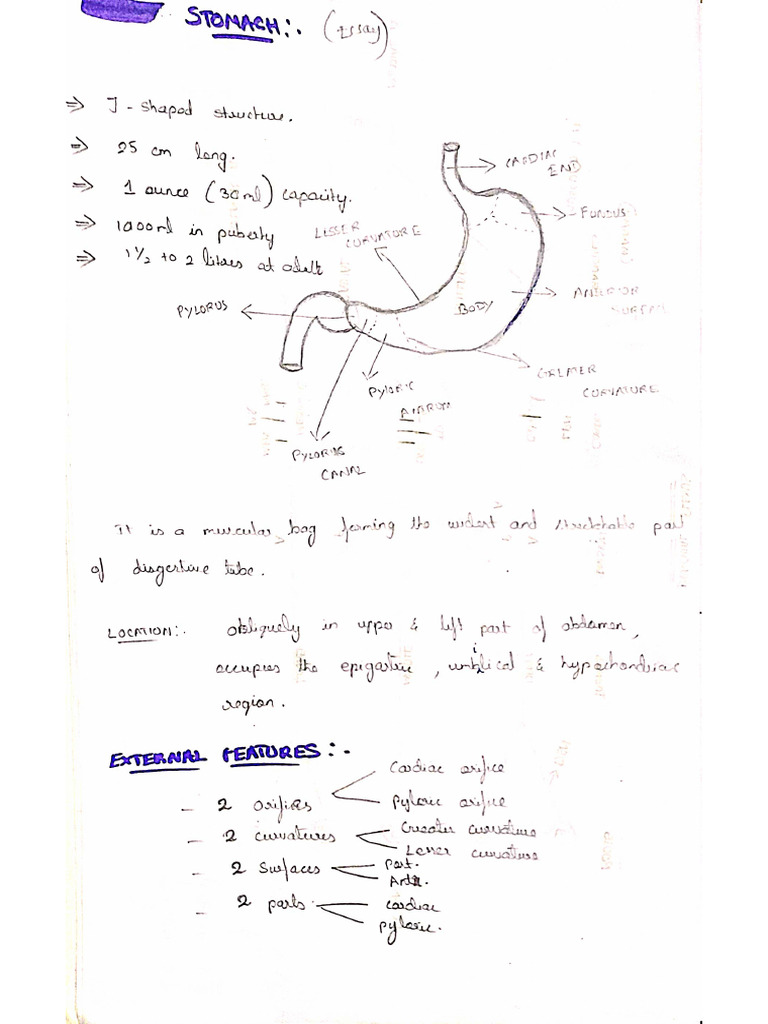 STOMACH:. (essay)
⇒ J - shaped structure.
⇒ 25 cm long.
⇒ 1 ounce (30ml) capacity.
⇒ 1000ml in puberty
⇒ 1 1/2 to 2 litres at adult
CARDIAC
END
FUNDUS
LESSER
CURVATURE
ANTERIOR
PYLORUS
BODY
GREATER
CURVATURE
PYLORIC
PYLORIC
CANAL
It is a muscular bag forming the widest and stretchable part
of disgertive tube.
LOCATION:. obliquely in upper & left part of abdomen,
occupies the epigastric, umblical & hypochondriac
region.
EXTERNAL FEATURES:-.
- 2 orifices
Cardiac orifice
pyloric orifice
- 2 curvatures
Greater curvature
Lesser curvature
- 2 Surfaces
post.
- 2 parts
cardiac
pyloric.